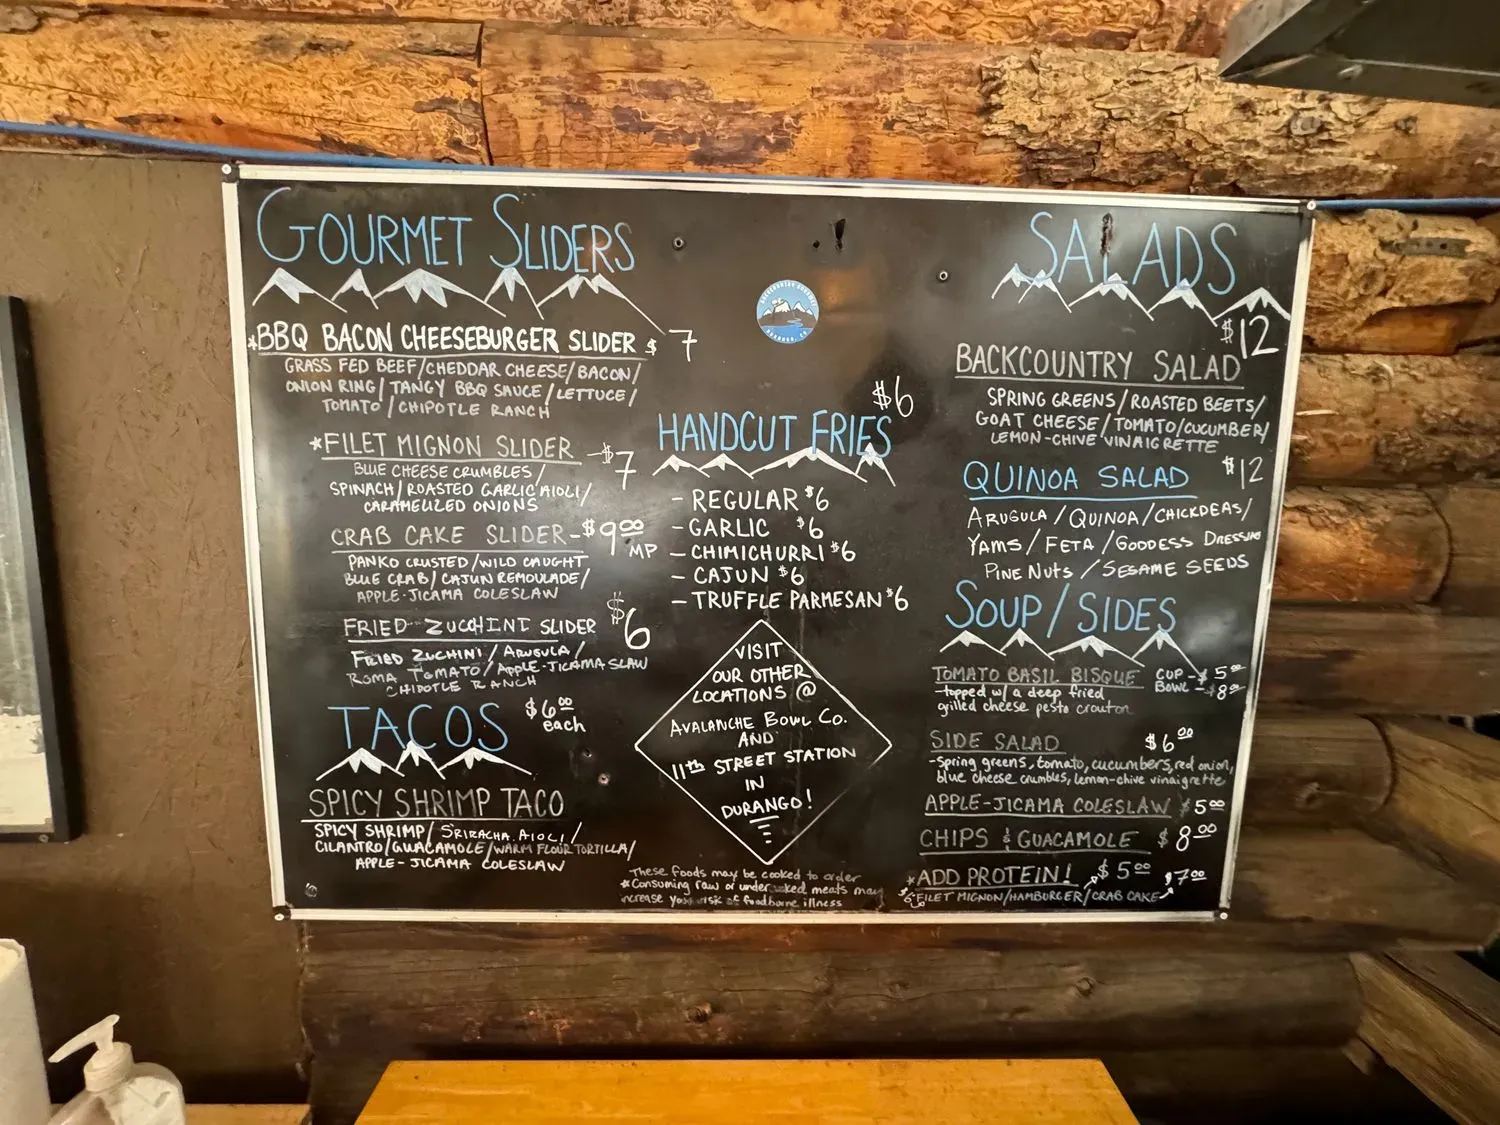 GOURMET SLIDERS
*BBQ BACON CHEESEBURGER SLIDER $7
GRASS FED BEEF/CHEDDAR CHEESE/BACON/
ONION RING/TANGY BBQ SAUCE/LETTUCE/
TOMATO/CHIPOTLE RANCH
*FILET MIGNON SLIDER -$7
BLUE CHEESE CRUMBLES/
SPINACH/ROASTED GARLIC AIOLI/
CARAMELIZED ONIONS
CRAB CAKE SLIDER-$9.00
MP
PANKO CRUSTED/WILD CAUGHT
BLUE CRAB/CAJUN REMOULADE/
APPLE-JICAMA COLESLAW
FRIED ZUCCHINI SLIDER $6
FRIED ZUCHINI/ARUGULA/
ROMA TOMATO/APPLE-JICAMA SLAW
CHIPOTLE RANCH
TACOS $6.00
each
SPICY SHRIMP TACO
SPICY SHRIMP/SRIRACHA AIOLI/
CILANTRO/GUACAMOLE/WARM FLOUR TORTILLA/
APPLE-JICAMA COLESLAW
$6
HANDCUT FRIES
- REGULAR $6
- GARLIC $6
- CHIMICHURRI $6
- CAJUN $6
- TRUFFLE PARMESAN $6
VISIT
OUR OTHER
LOCATIONS @
AVALANCHE BOWL CO.
AND
11th STREET STATION
IN
DURANGO!
These foods may be cooked to order
*Consuming raw or undercooked meats may
increase your risk of foodborne illness
SALADS
$12
BACKCOUNTRY SALAD
SPRING GREENS/ROASTED BEETS/
GOAT CHEESE/TOMATO/CUCUMBER/
LEMON-CHIVE VINAIGRETTE
QUINOA SALAD $12
ARUGULA/QUINOA/CHICKDEAS/
YAMS/FETA/GODDESS DRESSING
PINE NUTS/SESAME SEEDS
SOUP/SIDES
TOMATO BASIL BISQUE CUP-$5.00
BOWL-$8.00
-topped w/ a deep fried
grilled cheese pesto crouton
SIDE SALAD $6.00
-spring greens, tomato, cucumbers, red onion,
blue cheese crumbles, lemon-chive vinaigrette
APPLE-JICAMA COLESLAW $5.00
CHIPS & GUACAMOLE $8.00
*ADD PROTEIN! $5.00 $7.00
$6 FILET MIGNON/HAMBURGER/CRAB CAKE